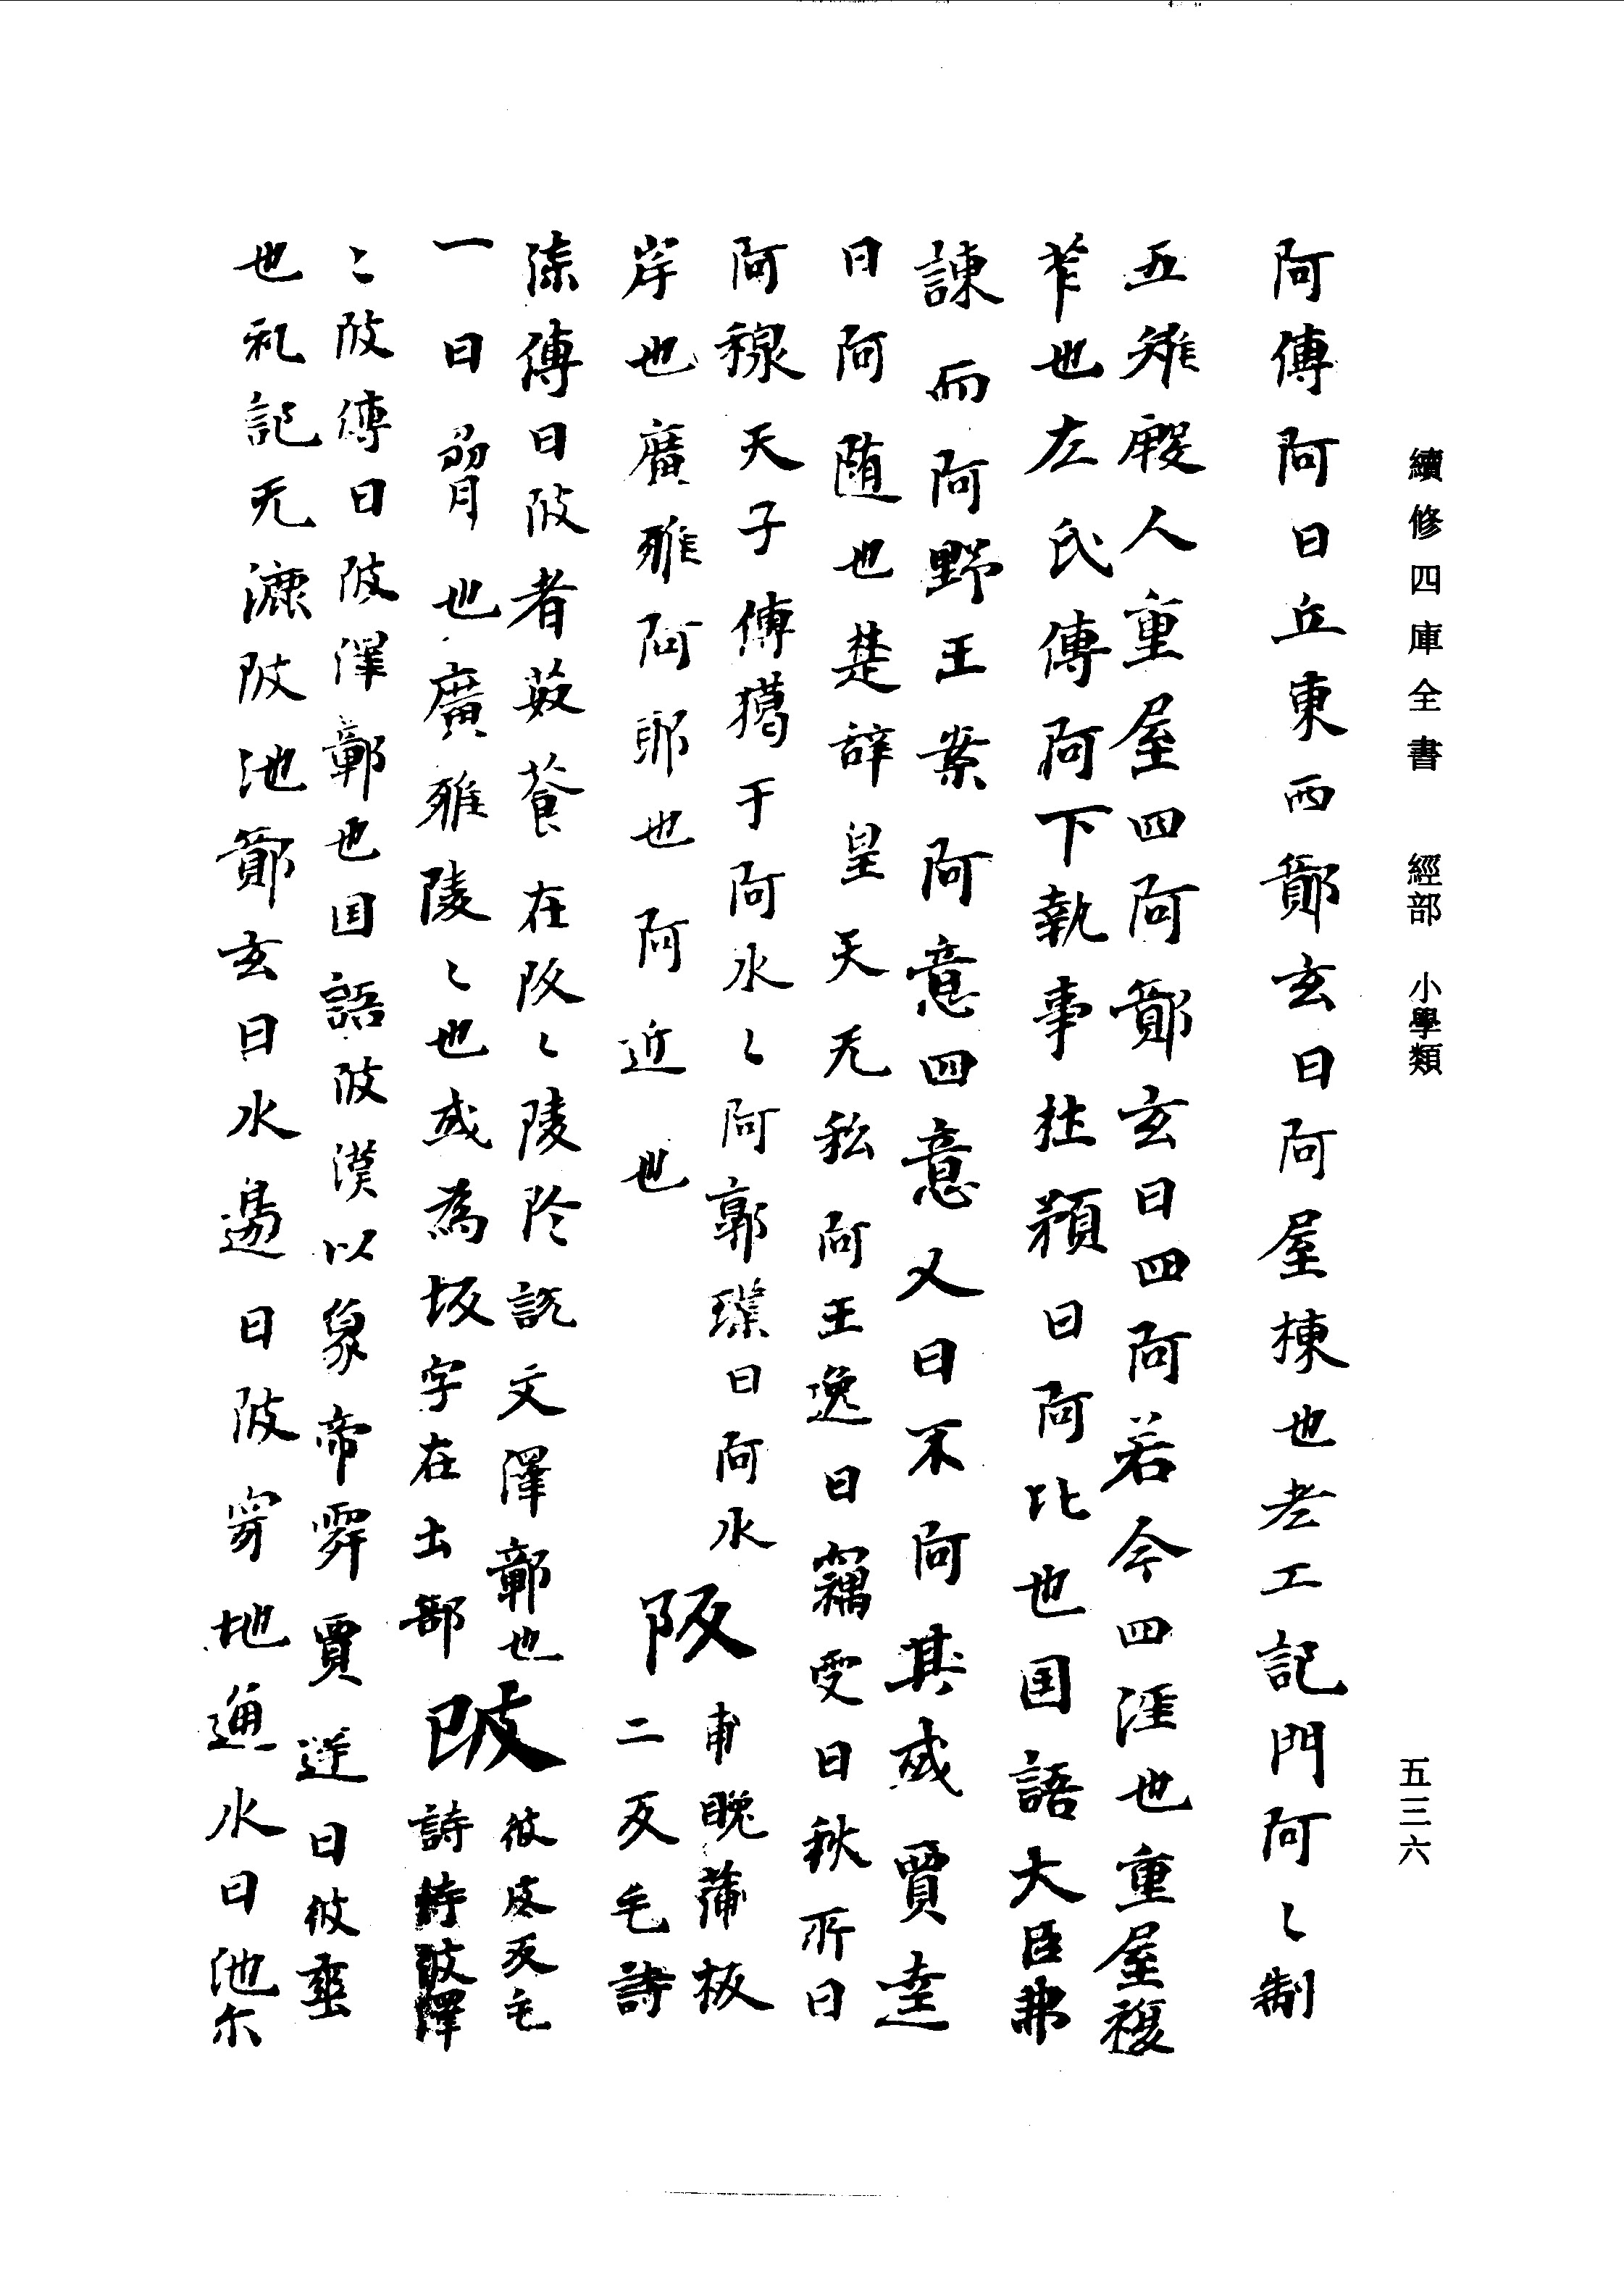 續修四庫全書 經部 小學類
五三六
阿傳阿曰丘東西鄭玄曰阿屋棟也考工記門阿〻制
五雉殷人重屋四阿鄭玄曰四阿若今四注也重屋複
笮也左氏傳阿下執事杜預曰阿比也国語大臣弗
諫而阿野王案阿意四意又曰不阿其或賈逵
曰阿随也楚辞皇天无私阿王逸曰竊受曰秋所曰
阿穆天子傳獦于阿水〻阿郭璞曰阿水
岸也廣雅阿邸也阿近也
阪
甫晚蒲板
二反毛詩
漆傳曰陂者
在阪〻陵
說文澤鄣也
一曰脅也廣雅陵〻也或為坂字在土部
陂
彼皮反毛
詩
澤
〻陂傳曰陂澤鄣也国語陂漢以象帝舜賈逵曰彼
也礼記无漉陂池鄭玄曰水邊曰陂穿地通水曰池尓